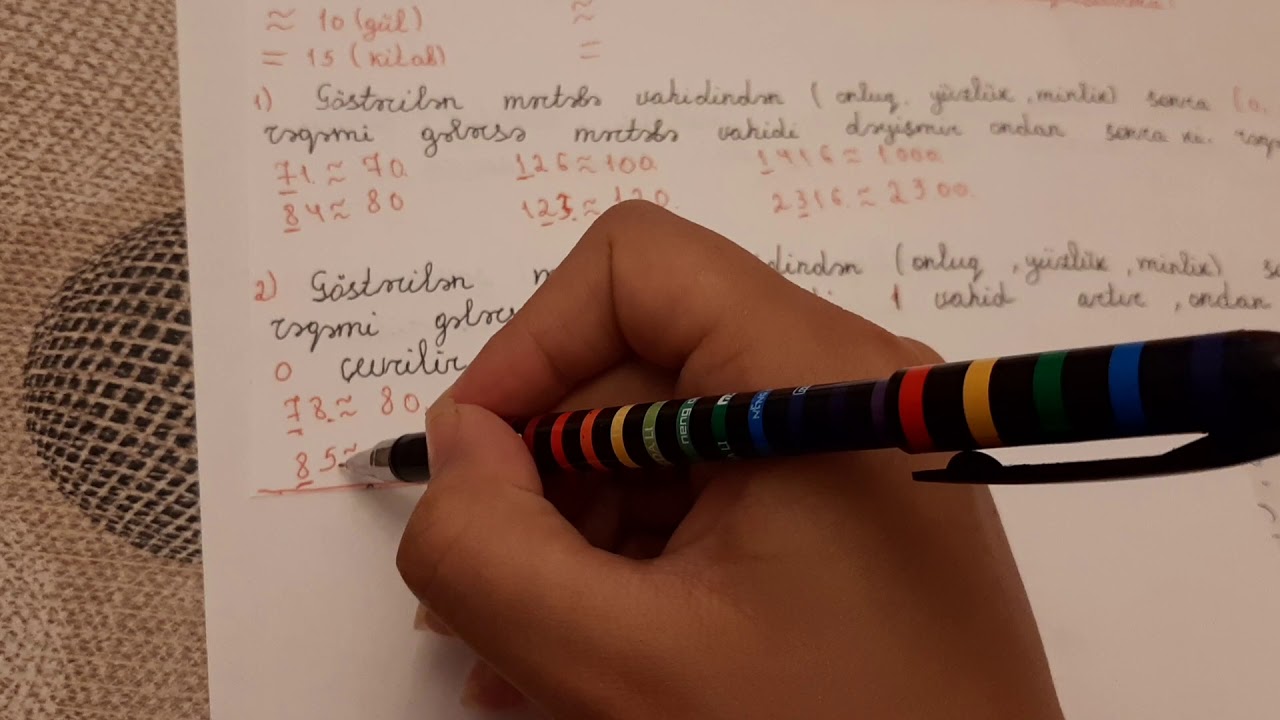 ≈ 10 (gül) ≈
= 15 (kitab) =
1) Göstərilən mərtəbə vahidindən (onluq, yüzlük, minlik) sonra (0,
rəqəmi gələrsə mərtəbə vahidi dəyişmir ondan sonra
71 ≈ 70 126 ≈ 100 1416 ≈ 1000
84 ≈ 80 123 ≈ 120 2316 ≈ 2300
2) Göstərilən (onluq, yüzlük, minlik)
rəqəmi 1 vahid artır, ondan
0 çevrilir
78 ≈ 80
85 ≈